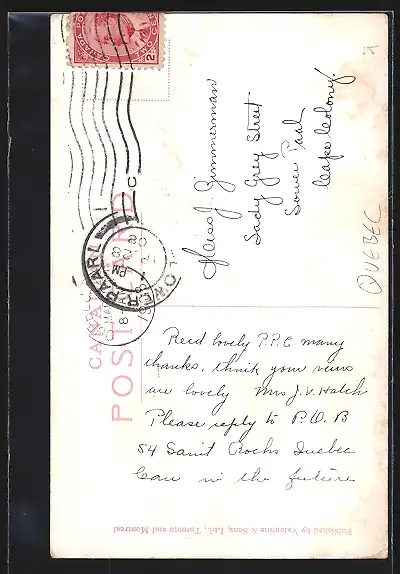 CANADIAN
POST CARD
LOWER PAARL
PM
08
CANADA
2
C
Miss J. Zimmerman
Lady Grey Street
Lower Paal
Cape Colony.
QUEBEC
Recd lovely P.P.C many
thanks, think your views
are lovely Mrs J. V. Hatch
Please reply to P.O.B
54 Saint Rochs Quebec
Can in the future
Published by Valentine & Sons, Ltd., Toronto and Montreal